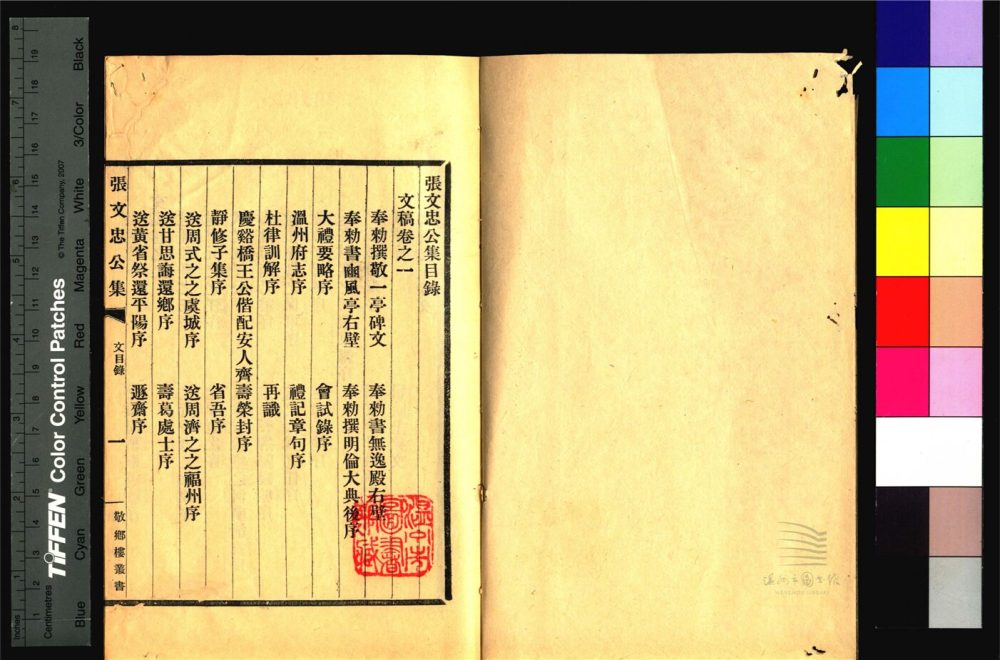 張文忠公集目錄
文稿卷之一
奉勅撰敬一亭碑文　奉勅書無逸殿右壁
奉勅書豳風亭右壁　奉勅撰明倫大典後序
大禮要略序　會試錄序
溫州府志序　禮記章句序
杜律訓解序　再識
慶谿橋王公偕配安人齊壽榮封序
靜修子集序　省吾序
送周式之之虞城序　送周濟之之福州序
送甘思誨還鄉序　壽葛處士序
送黃省祭還平陽序　遯齋序
張文忠公集　文目錄　一　敬鄉樓叢書
溫州市圖書館藏
溫州市圖書館
WENZHOU LIBRARY
Inches
Centimetres
TIFFEN Color Control Patches
© The Tiffen Company, 2007
Blue Cyan Green Yellow Red Magenta White 3/Color Black
1 2 3 4 5 6 7 8
1 2 3 4 5 6 7 8 9 10 11 12 13 14 15 16 17 18 19